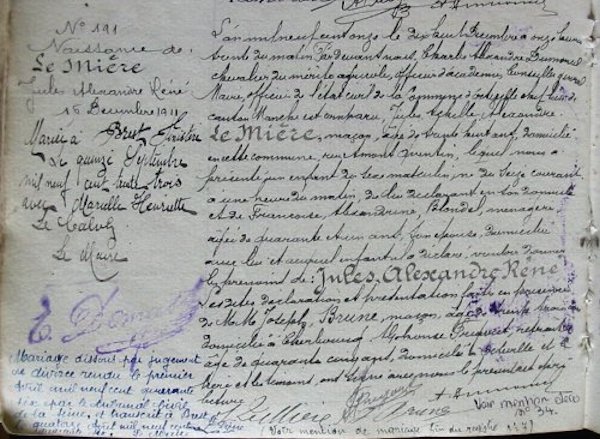 N° 191
Naissance de
Le Mière
Jules Alexandre Réné
16 Décembre 1911
Marié à Brest Finistère
Le quinze Septembre
mil neuf cent trente trois
avec Marcelle Henriette
Le
Le Maire
Mariage dissous par jugement
de divorce rendu le premier
avril mil neuf cent quarante
six par le tribunal civil
de la Seine, et transcrit à Brest
le quatorze mil neuf cent
L'an mil neuf cent onze le dix huit Décembre à onze heures
trente du matin Par devant nous, Charles Alexandre Dumoncel
chevalier du mérite agricole, officier d'académie, Conseiller général
Maire officier de l'état civil de la Commune d'Octeville chef lieu de
canton Manche est comparu, Jules Achille Alexandre
Le Mière, maçon, âgé de trente huit ans, domicilié
en cette commune, rue Amont Quentin, lequel nous a
présenté un enfant du sexe masculin, né le Seize courant
à une heure du matin, de lui déclarant en son domicile
et de Françoise, Alexandrine, Blondel, ménagère
âgée de quarante et un ans, son épouse, domiciliée
avec lui et auquel enfant il a déclaré, vouloir donner
les prénoms de: Jules, Alexandre, Réné
Les dites déclaration et présentation faites en présence
de M.M. Joseph, Brune, maçon, âgé de trente
domicilié à Cherbourg Alphonse
âgé de quarante cinq ans, domicilié à Octeville et le
père et les témoins, ont signé avec nous le présent acte après
lecture
J Le Mière
Brune
A Dumoncel
Voir mention
N° 34.
Voir mention de mariage fin du registre